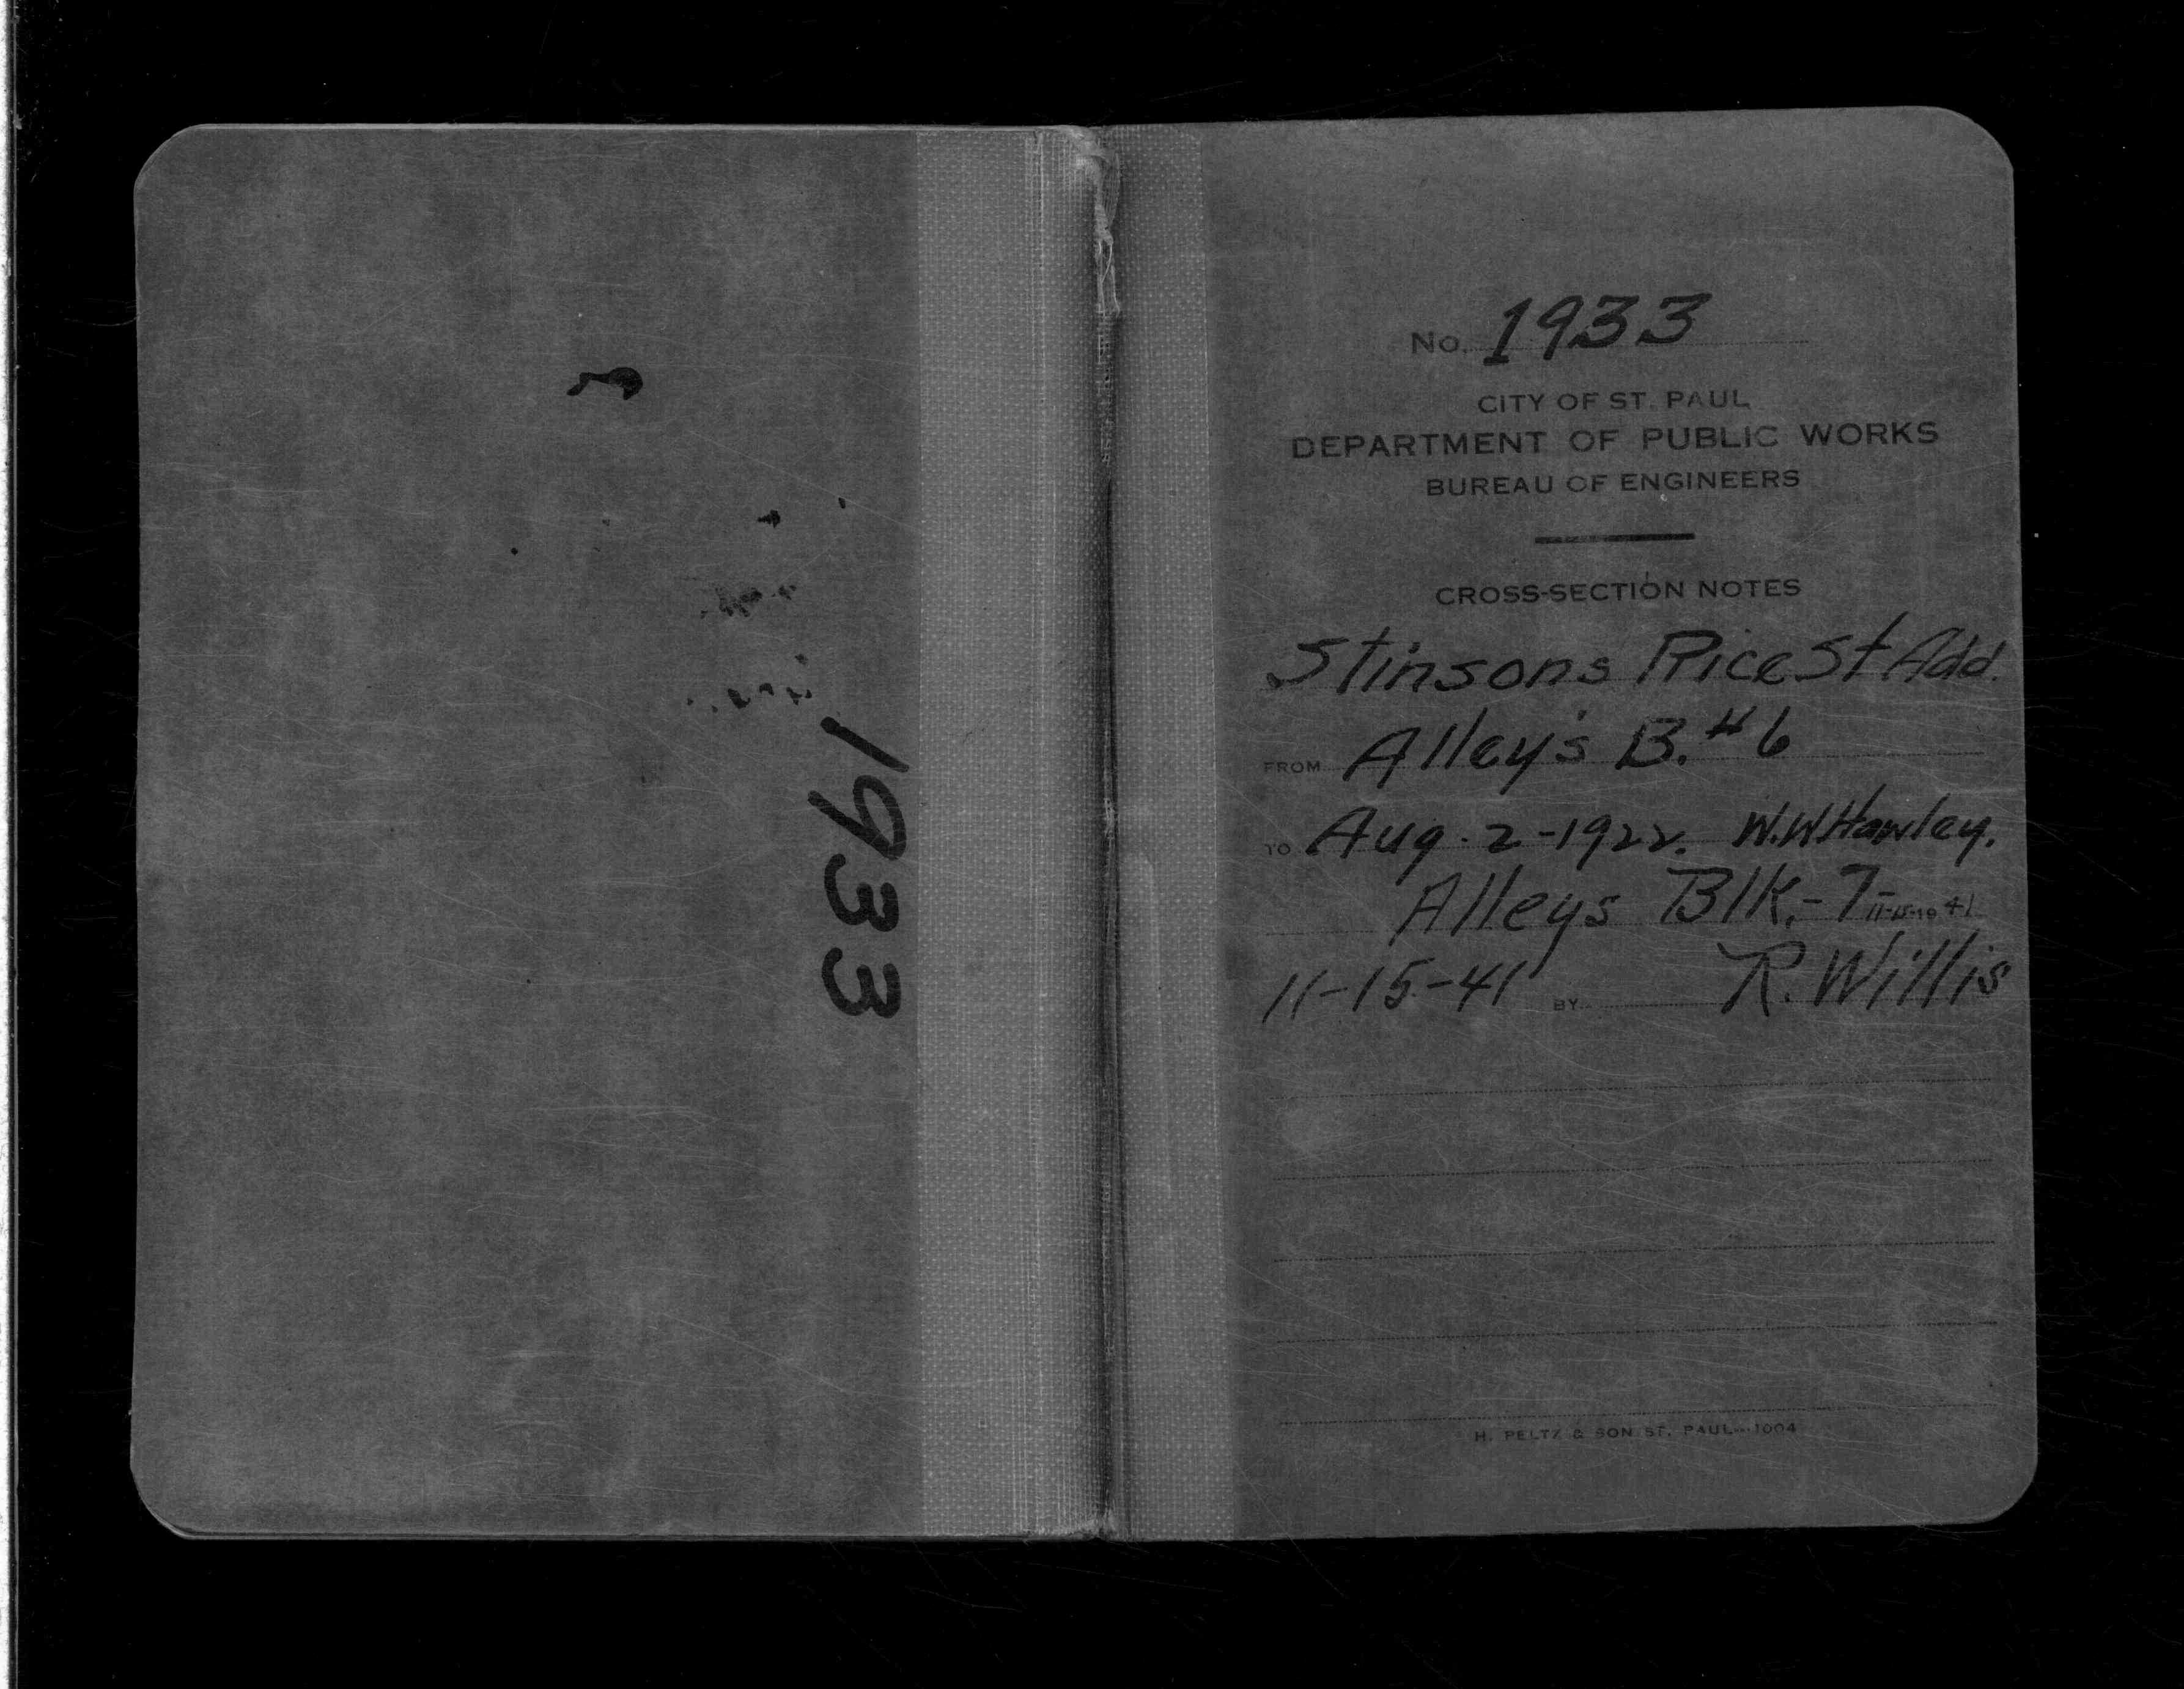 1933
No. 1933
CITY OF ST. PAUL
DEPARTMENT OF PUBLIC WORKS
BUREAU OF ENGINEERS
CROSS-SECTION NOTES
Stinsons Rice St Add.
FROM Alley's B. #6
TO Aug. 2-1922. W.W Hawley.
Alleys Blk.-7 11-15-1941
11-15-41 BY R. Willis
H. PELTZ & SON ST. PAUL--1004